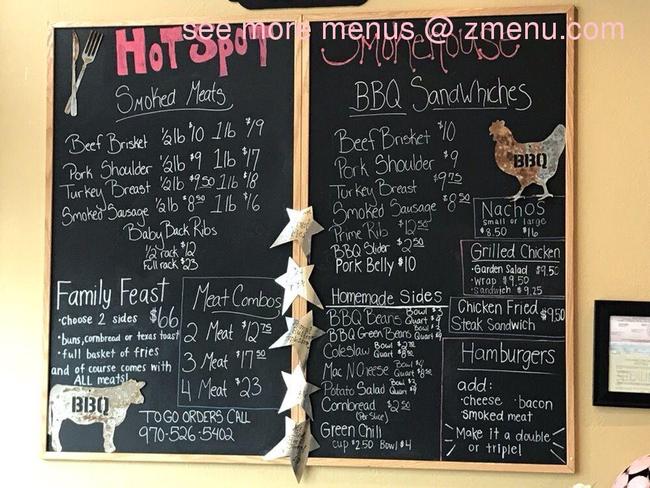 see more menus @ zmenu.com
HOT SPOT
Smoked Meats
Beef Brisket ½lb $10 1lb $19
Pork Shoulder ½lb $9 1lb $17
Turkey Breast ½lb $9.50 1lb $18
Smoked Sausage ½lb $8.50 1lb $16
Baby Back Ribs
½ rack $12
Full rack $23
Family Feast
$66
• choose 2 sides
• buns, cornbread or texas toast
• full basket of fries
and of course comes with
ALL meats!
BBQ
Meat Combos
2 Meat $12.75
3 Meat $17.50
4 Meat $23
TO GO ORDERS CALL
970-526-5402
Smokehouse
BBQ Sandwhiches
Beef Brisket $10
Pork Shoulder $9
Turkey Breast $9.75
Smoked Sausage $8.50
Prime Rib $12.50
BBQ Slider $2.50
Pork Belly $10
Homemade Sides
BBQ Beans Bowl Quart
BBQ Green Beans Bowl Quart
Coleslaw Bowl Quart
Mac N Cheese Bowl Quart
Potato Salad Bowl Quart
Cornbread $2.50
(Per Slice)
Green Chili
cup $2.50 Bowl $4
BBQ
Nachos
small or large
$8.50 $16
Grilled Chicken
• Garden Salad $9.50
• wrap $9.50
• Sandwich $9.25
Chicken Fried
Steak Sandwich $9.50
Hamburgers
add:
• cheese • bacon
smoked meat
Make it a double
or triple!